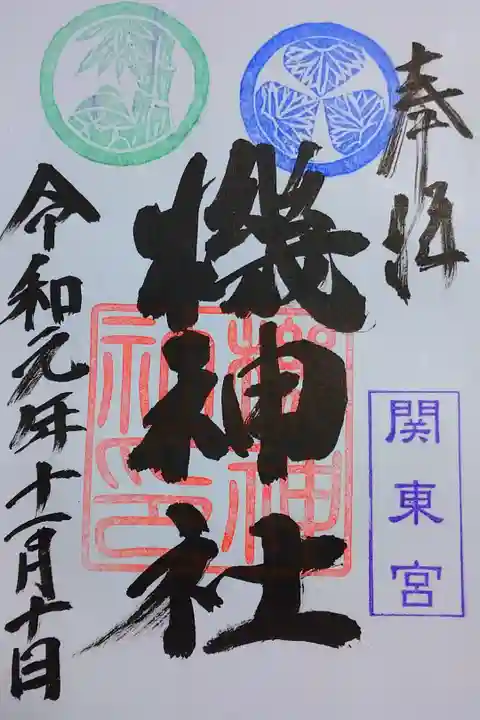 奉拝
関東宮
機神社
機神社印
令和元年十一月十日